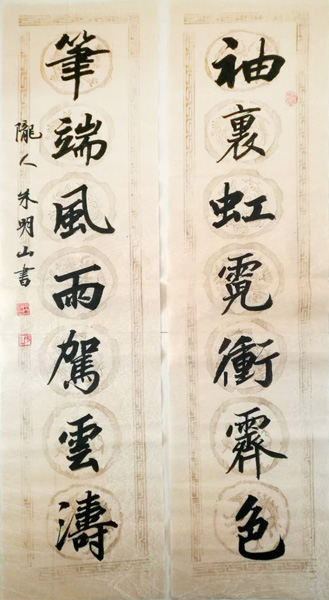 袖裏虹霓衝霽色
筆端風雨駕雲濤
隴人朱明山書